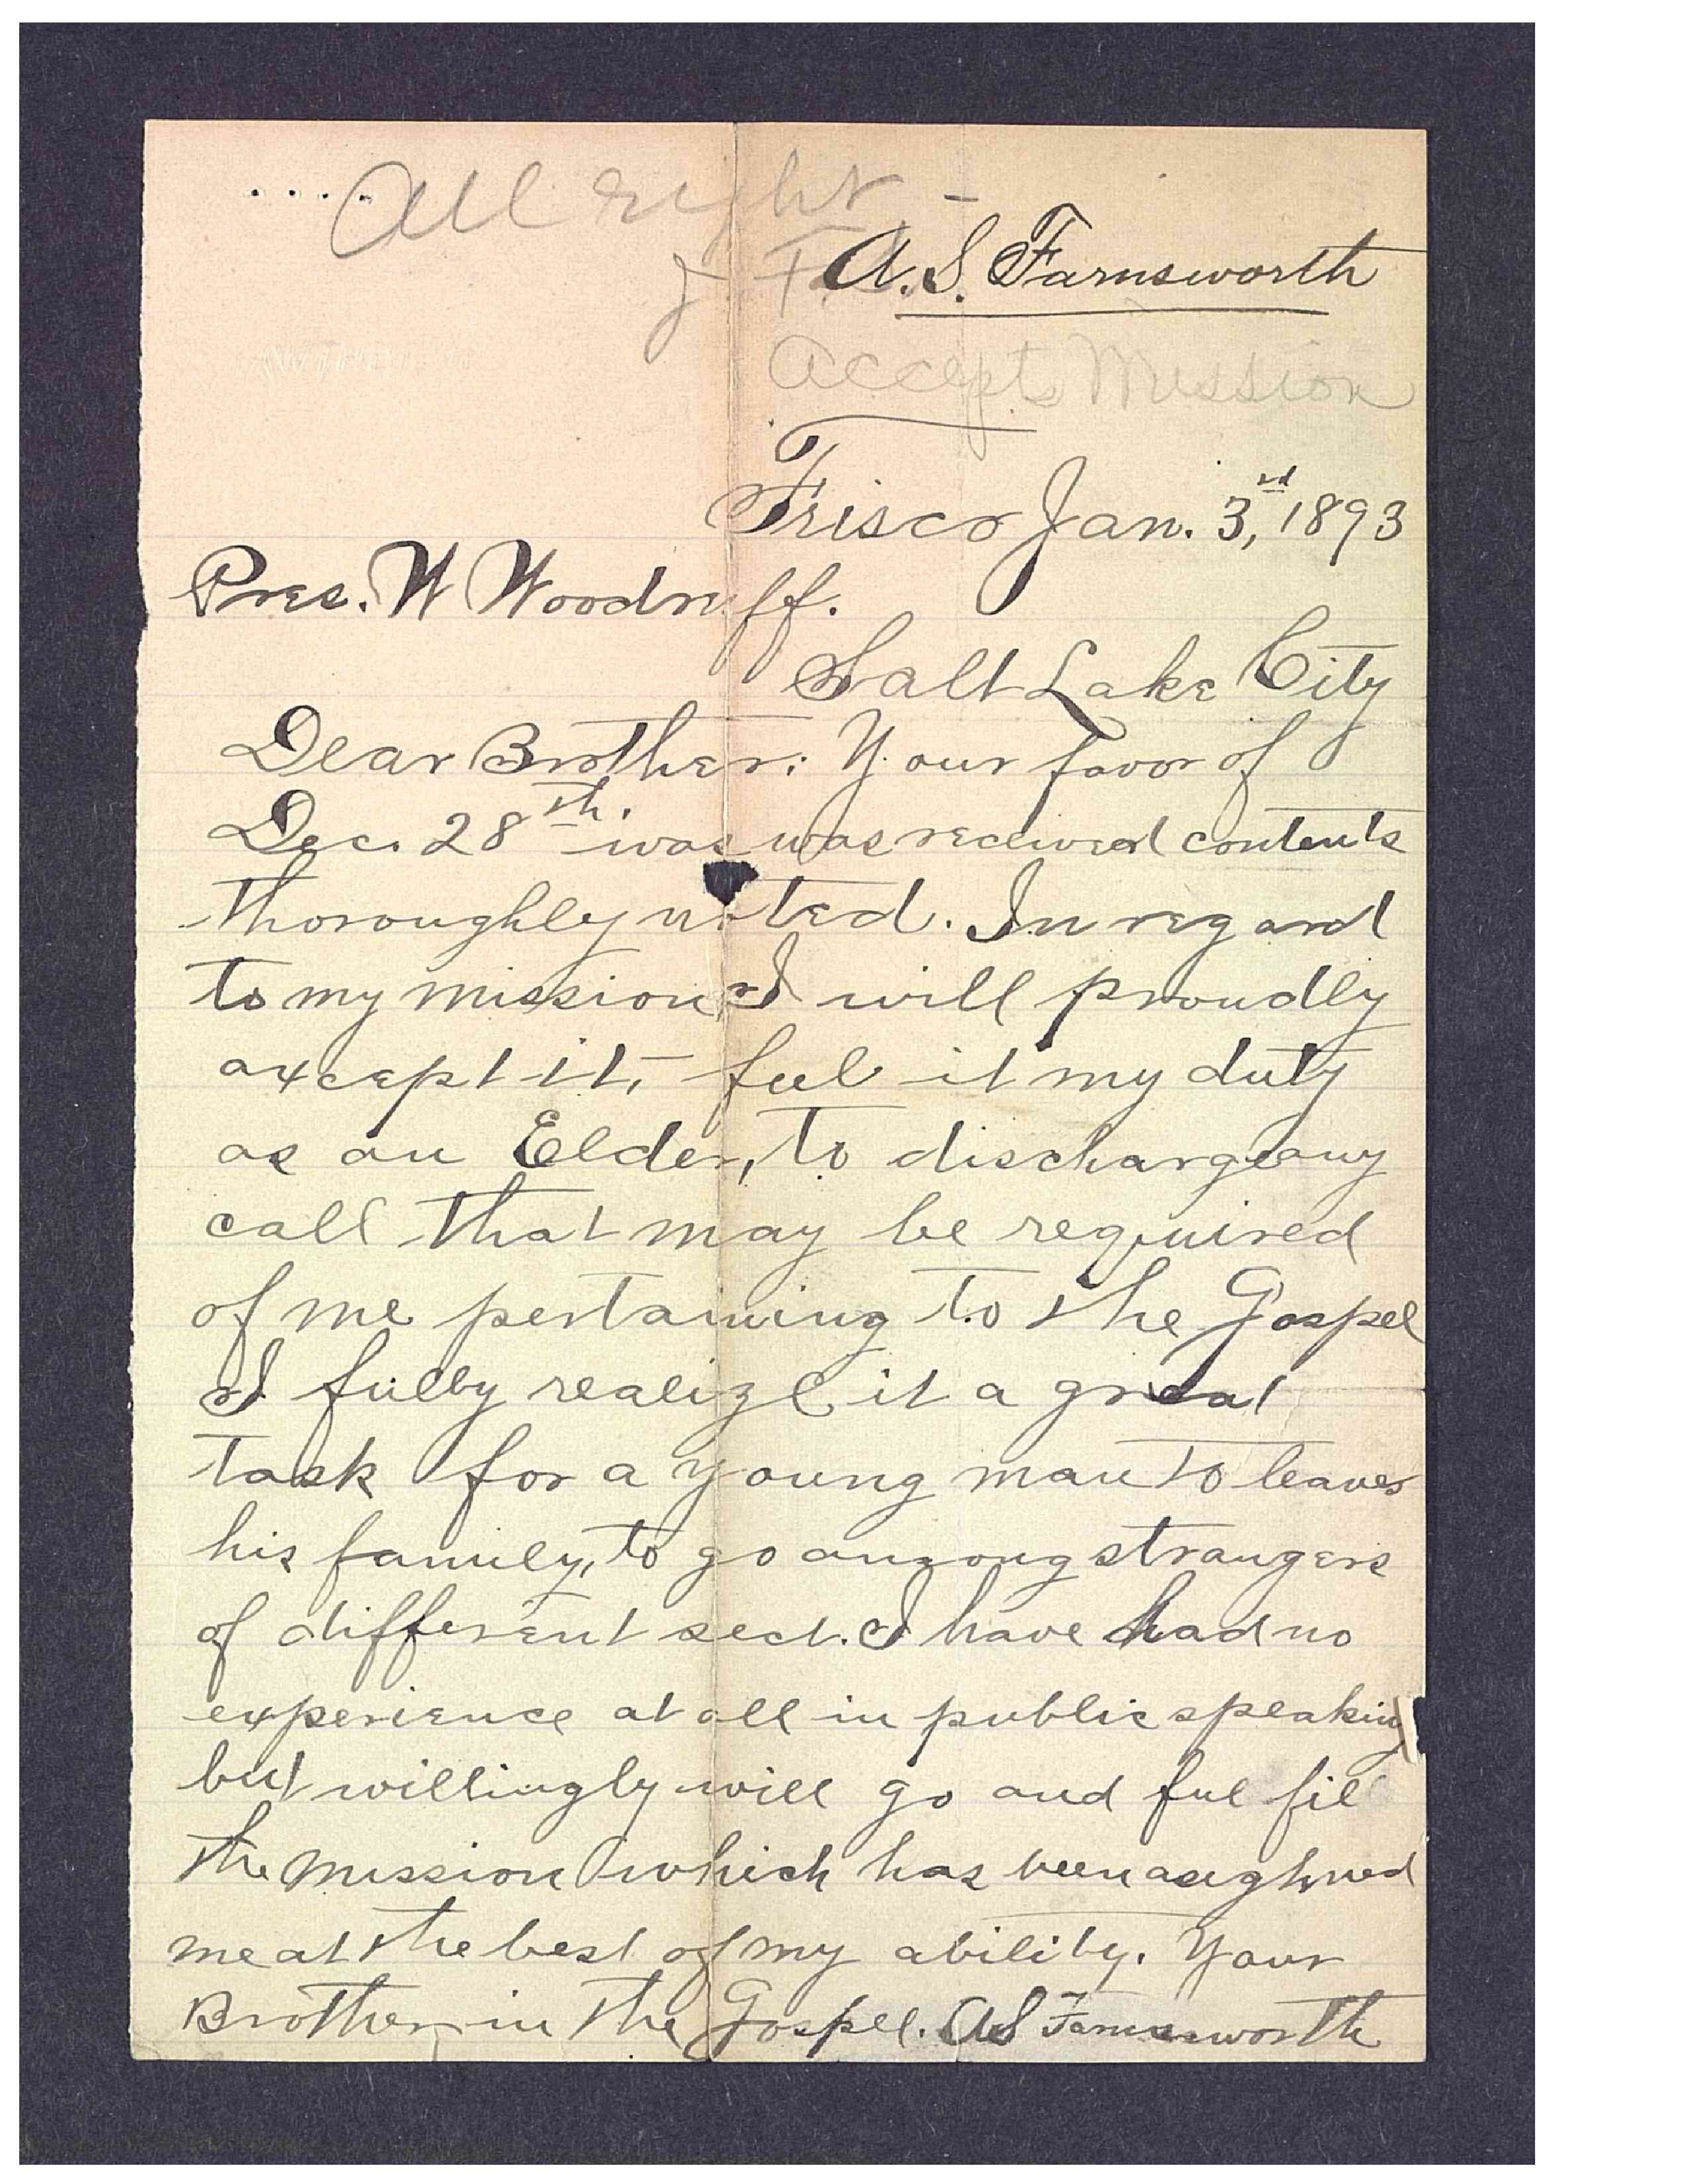 All right -
J. F.
A. S. Farnsworth
Accepts Mission
Frisco Jan. 3rd, 1893
Pres. W Woodruff.
Salt Lake City
Dear Brother: Your favor of
Dec. 28th. was was received contents
thoroughly noted. In regard
to my mission I will proudly
except it, feel it my duty
as an Elder, to discharge any
call that may be required
of me pertaining to the Gospel
I fully realize it a great
task for a young man to leaves
his family, to go among strangers
of different sect. I have had no
experience at all in public speaking
but willingly will go and ful fil
the mission which has been asighned
me at the best of my ability. Your
Brother in the Gospel. AS Farnsworth